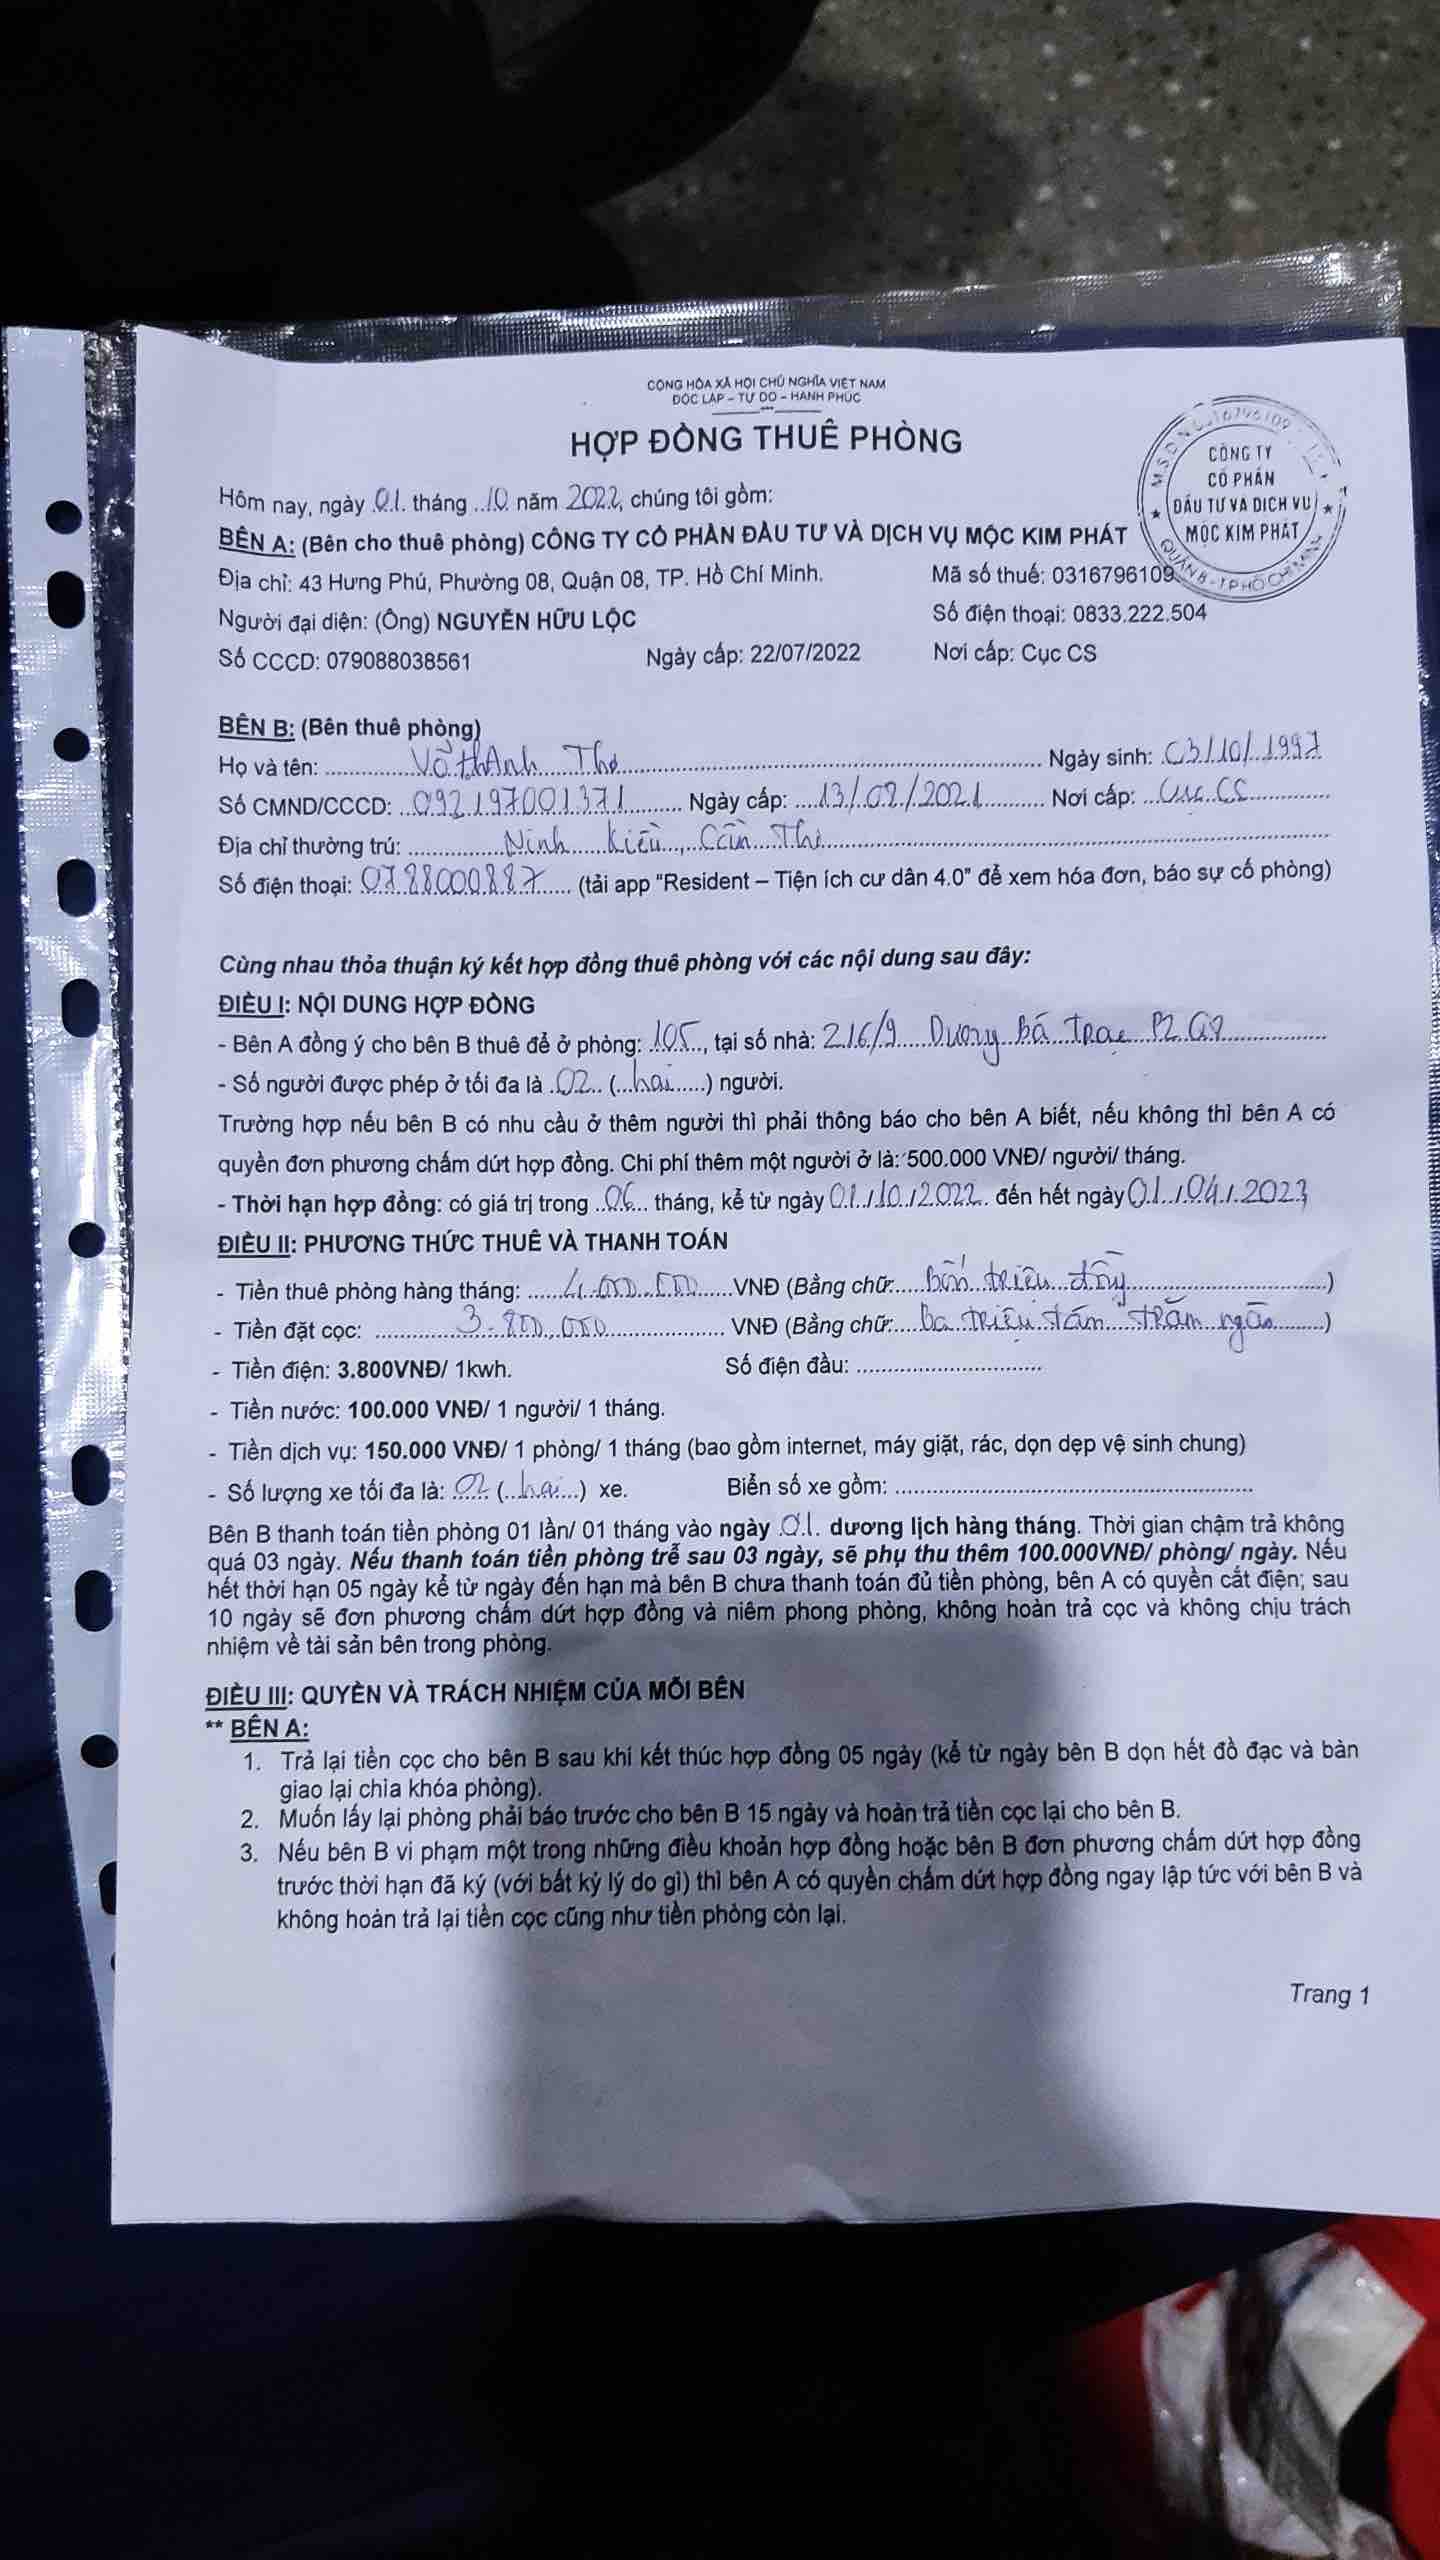 CỘNG HÒA XÃ HỘI CHỦ NGHĨA VIỆT NAM
ĐỘC LẬP – TỰ DO – HẠNH PHÚC
HỢP ĐỒNG THUÊ PHÒNG
M.S.D.N: 0316796109
CÔNG TY
CỔ PHẦN
ĐẦU TƯ VÀ DỊCH VỤ
MỘC KIM PHÁT
QUẬN 8 - TP HỒ CHÍ MINH
Hôm nay, ngày 01 tháng 10 năm 2022, chúng tôi gồm:
BÊN A: (Bên cho thuê phòng) CÔNG TY CỔ PHẦN ĐẦU TƯ VÀ DỊCH VỤ MỘC KIM PHÁT
Địa chỉ: 43 Hưng Phú, Phường 08, Quận 08, TP. Hồ Chí Minh. Mã số thuế: 0316796109
Người đại diện: (Ông) NGUYỄN HỮU LỘC Số điện thoại: 0833.222.504
Số CCCD: 079088038561 Ngày cấp: 22/07/2022 Nơi cấp: Cục CS
BÊN B: (Bên thuê phòng)
Họ và tên: Võ thanh Thơ Ngày sinh: 03/10/1997
Số CMND/CCCD: 092197001371 Ngày cấp: 13/02/2021 Nơi cấp: Cục CS
Địa chỉ thường trú: Ninh Kiều, Cần Thơ
Số điện thoại: 0788000887 (tải app "Resident – Tiện ích cư dân 4.0" để xem hóa đơn, báo sự cố phòng)
Cùng nhau thỏa thuận ký kết hợp đồng thuê phòng với các nội dung sau đây:
ĐIỀU I: NỘI DUNG HỢP ĐỒNG
- Bên A đồng ý cho bên B thuê để ở phòng: 105, tại số nhà: 216/9 Dương Bá Trạc P2 Q8
- Số người được phép ở tối đa là 02 (hai) người.
Trường hợp nếu bên B có nhu cầu ở thêm người thì phải thông báo cho bên A biết, nếu không thì bên A có
quyền đơn phương chấm dứt hợp đồng. Chi phí thêm một người ở là: 500.000 VNĐ/ người/ tháng.
- Thời hạn hợp đồng: có giá trị trong 06 tháng, kể từ ngày 01/10/2022 đến hết ngày 01/04/2023
ĐIỀU II: PHƯƠNG THỨC THUÊ VÀ THANH TOÁN
- Tiền thuê phòng hàng tháng: 4.000.000 VNĐ (Bằng chữ: Bốn triệu đồng)
- Tiền đặt cọc: 3.800.000 VNĐ (Bằng chữ: Ba triệu tám trăm ngàn)
- Tiền điện: 3.800VNĐ/ 1kwh. Số điện đầu:
- Tiền nước: 100.000 VNĐ/ 1 người/ 1 tháng.
- Tiền dịch vụ: 150.000 VNĐ/ 1 phòng/ 1 tháng (bao gồm internet, máy giặt, rác, dọn dẹp vệ sinh chung)
- Số lượng xe tối đa là: 02 (hai) xe. Biển số xe gồm:
Bên B thanh toán tiền phòng 01 lần/ 01 tháng vào ngày 01 dương lịch hàng tháng. Thời gian chậm trả không
quá 03 ngày. Nếu thanh toán tiền phòng trễ sau 03 ngày, sẽ phụ thu thêm 100.000VNĐ/ phòng/ ngày. Nếu
hết thời hạn 05 ngày kể từ ngày đến hạn mà bên B chưa thanh toán đủ tiền phòng, bên A có quyền cắt điện; sau
10 ngày sẽ đơn phương chấm dứt hợp đồng và niêm phong phòng, không hoàn trả cọc và không chịu trách
nhiệm về tài sản bên trong phòng.
ĐIỀU III: QUYỀN VÀ TRÁCH NHIỆM CỦA MỖI BÊN
** BÊN A:
1. Trả lại tiền cọc cho bên B sau khi kết thúc hợp đồng 05 ngày (kể từ ngày bên B dọn hết đồ đạc và bàn
giao lại chìa khóa phòng).
2. Muốn lấy lại phòng phải báo trước cho bên B 15 ngày và hoàn trả tiền cọc lại cho bên B.
3. Nếu bên B vi phạm một trong những điều khoản hợp đồng hoặc bên B đơn phương chấm dứt hợp đồng
trước thời hạn đã ký (với bất kỳ lý do gì) thì bên A có quyền chấm dứt hợp đồng ngay lập tức với bên B và
không hoàn trả lại tiền cọc cũng như tiền phòng còn lại.
Trang 1